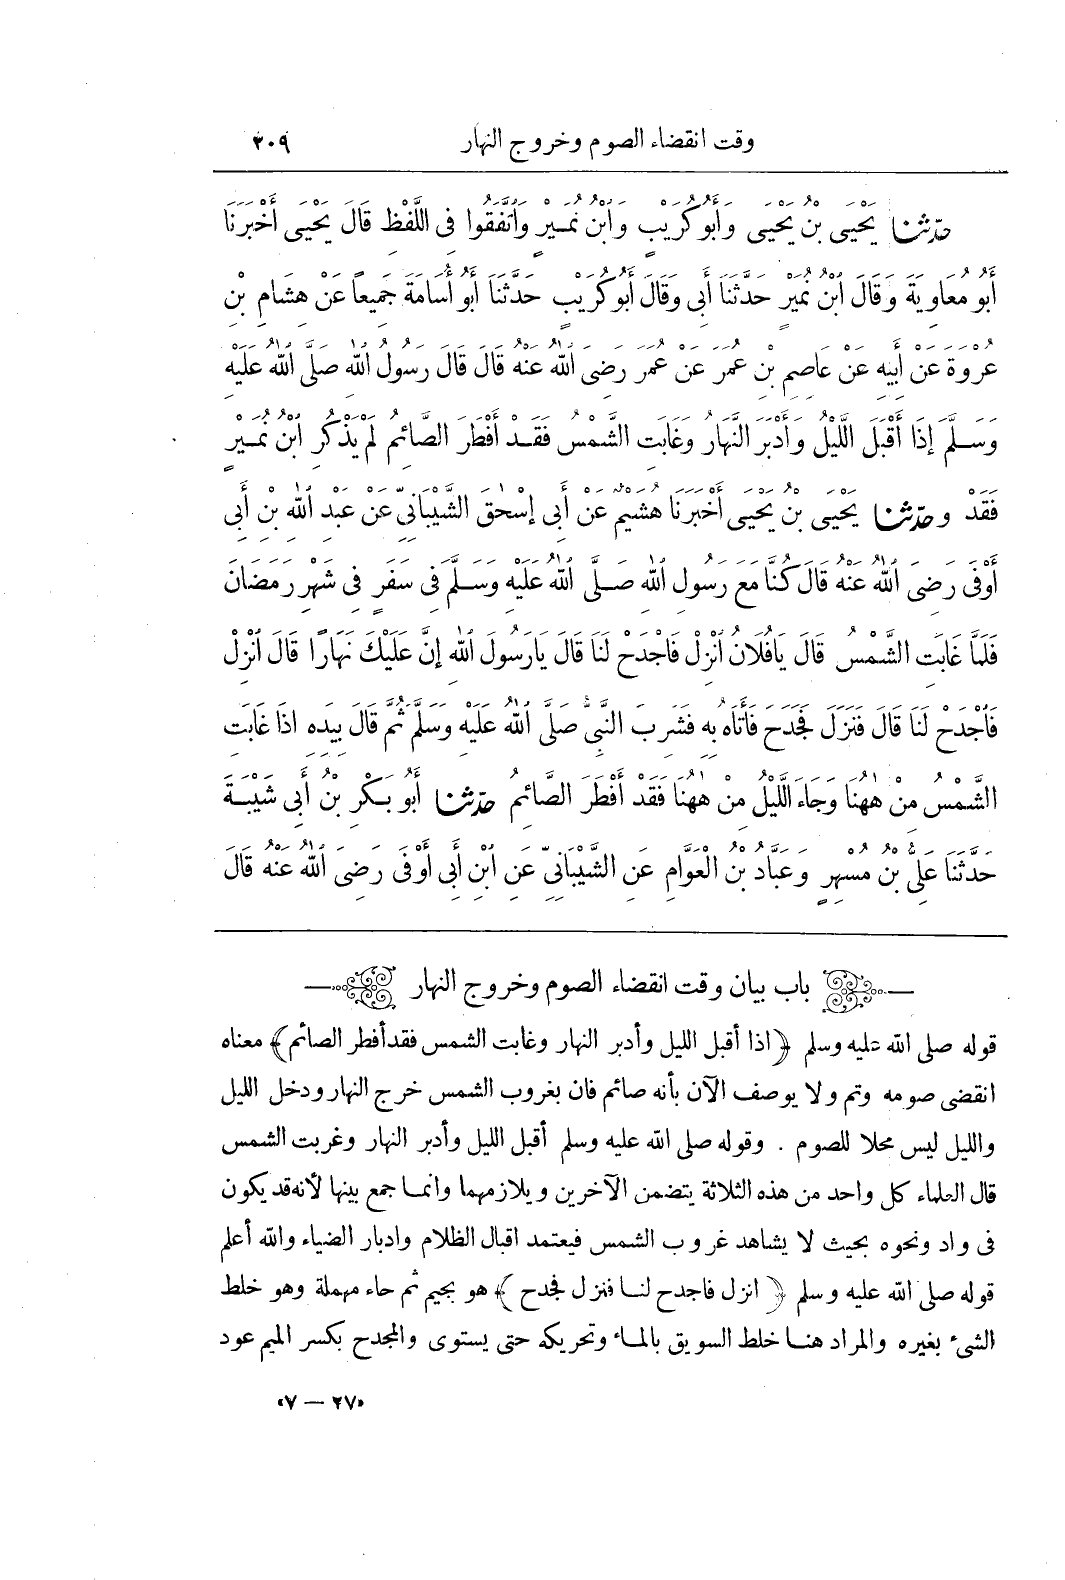 وقت انقضاء الصوم وخروج النهار ٢٠٩
حدّثنا يَحْيَى بْنُ يَحْيَى وَأَبُو كُرَيْبٍ وَابْنُ نُمَيْرٍ وَاتَّفَقُوا فِى اللَّفْظِ قَالَ يَحْيَى أَخْبَرَنَا
أَبُو مُعَاوِيَةَ وَقَالَ ابْنُ نُمَيْرٍ حَدَّثَنَا أَبِى وَقَالَ أَبُو كُرَيْبٍ حَدَّثَنَا أَبُو أُسَامَةَ جَمِيعًا عَنْ هِشَامِ بْنِ
عُرْوَةَ عَنْ أَبِيهِ عَنْ عَاصِمِ بْنِ عُمَرَ عَنْ عُمَرَ رَضِىَ اللهُ عَنْهُ قَالَ قَالَ رَسُولُ اللهِ صَلَّى اللهُ عَلَيْهِ
وَسَلَّمَ إِذَا أَقْبَلَ اللَّيْلُ وَأَدْبَرَ النَّهَارُ وَغَابَتِ الشَّمْسُ فَقَدْ أَفْطَرَ الصَّائِمُ لَمْ يَذْكُرِ ابْنُ نُمَيْرٍ
فَقَدْ و حدّثنا يَحْيَى بْنُ يَحْيَى أَخْبَرَنَا هُشَيْمٌ عَنْ أَبِى إِسْحٰقَ الشَّيْبَانِىِّ عَنْ عَبْدِ اللهِ بْنِ أَبِى
أَوْفَى رَضِىَ اللهُ عَنْهُ قَالَ كُنَّا مَعَ رَسُولِ اللهِ صَلَّى اللهُ عَلَيْهِ وَسَلَّمَ فِى سَفَرٍ فِى شَهْرِ رَمَضَانَ
فَلَمَّا غَابَتِ الشَّمْسُ قَالَ يَافُلَانُ انْزِلْ فَاجْدَحْ لَنَا قَالَ يَارَسُولَ اللهِ إِنَّ عَلَيْكَ نَهَارًا قَالَ انْزِلْ
فَاجْدَحْ لَنَا قَالَ فَنَزَلَ فَجَدَحَ فَأَتَاهُ بِهِ فَشَرِبَ النَّبِىُّ صَلَّى اللهُ عَلَيْهِ وَسَلَّمَ ثُمَّ قَالَ بِيَدِهِ اذَا غَابَتِ
الشَّمْسُ مِنْ هٰهُنَا وَجَاءَ اللَّيْلُ مِنْ هٰهُنَا فَقَدْ أَفْطَرَ الصَّائِمُ حدّثنا أَبُو بَكْرِ بْنُ أَبِى شَيْبَةَ
حَدَّثَنَا عَلِىُّ بْنُ مُسْهِرٍ وَعَبَّادُ بْنُ الْعَوَّامِ عَنِ الشَّيْبَانِىِّ عَنِ ابْنِ أَبِى أَوْفَى رَضِىَ اللهُ عَنْهُ قَالَ
باب بيان وقت انقضاء الصوم وخروج النهار
قوله صلى الله عليه وسلم ﴿اذا أقبل الليل وأدبر النهار وغابت الشمس فقد أفطر الصائم﴾ معناه
انقضى صومه وتم ولا يوصف الآن بأنه صائم فان بغروب الشمس خرج النهار ودخل الليل
والليل ليس محلا للصوم . وقوله صلى الله عليه وسلم أقبل الليل وأدبر النهار وغربت الشمس
قال العلماء كل واحد من هذه الثلاثة يتضمن الآخرين ويلازمهما وانما جمع بينها لأنه قد يكون
فى واد ونحوه بحيث لا يشاهد غروب الشمس فيعتمد اقبال الظلام وادبار الضياء والله أعلم
قوله صلى الله عليه وسلم ﴿انزل فاجدح لنا فنزل فجدح﴾ هو بجيم ثم حاء مهملة وهو خلط
الشىء بغيره والمراد هنا خلط السويق بالماء وتحريكه حتى يستوى والمجدح بكسر الميم عود
«٢٧ — ٧»